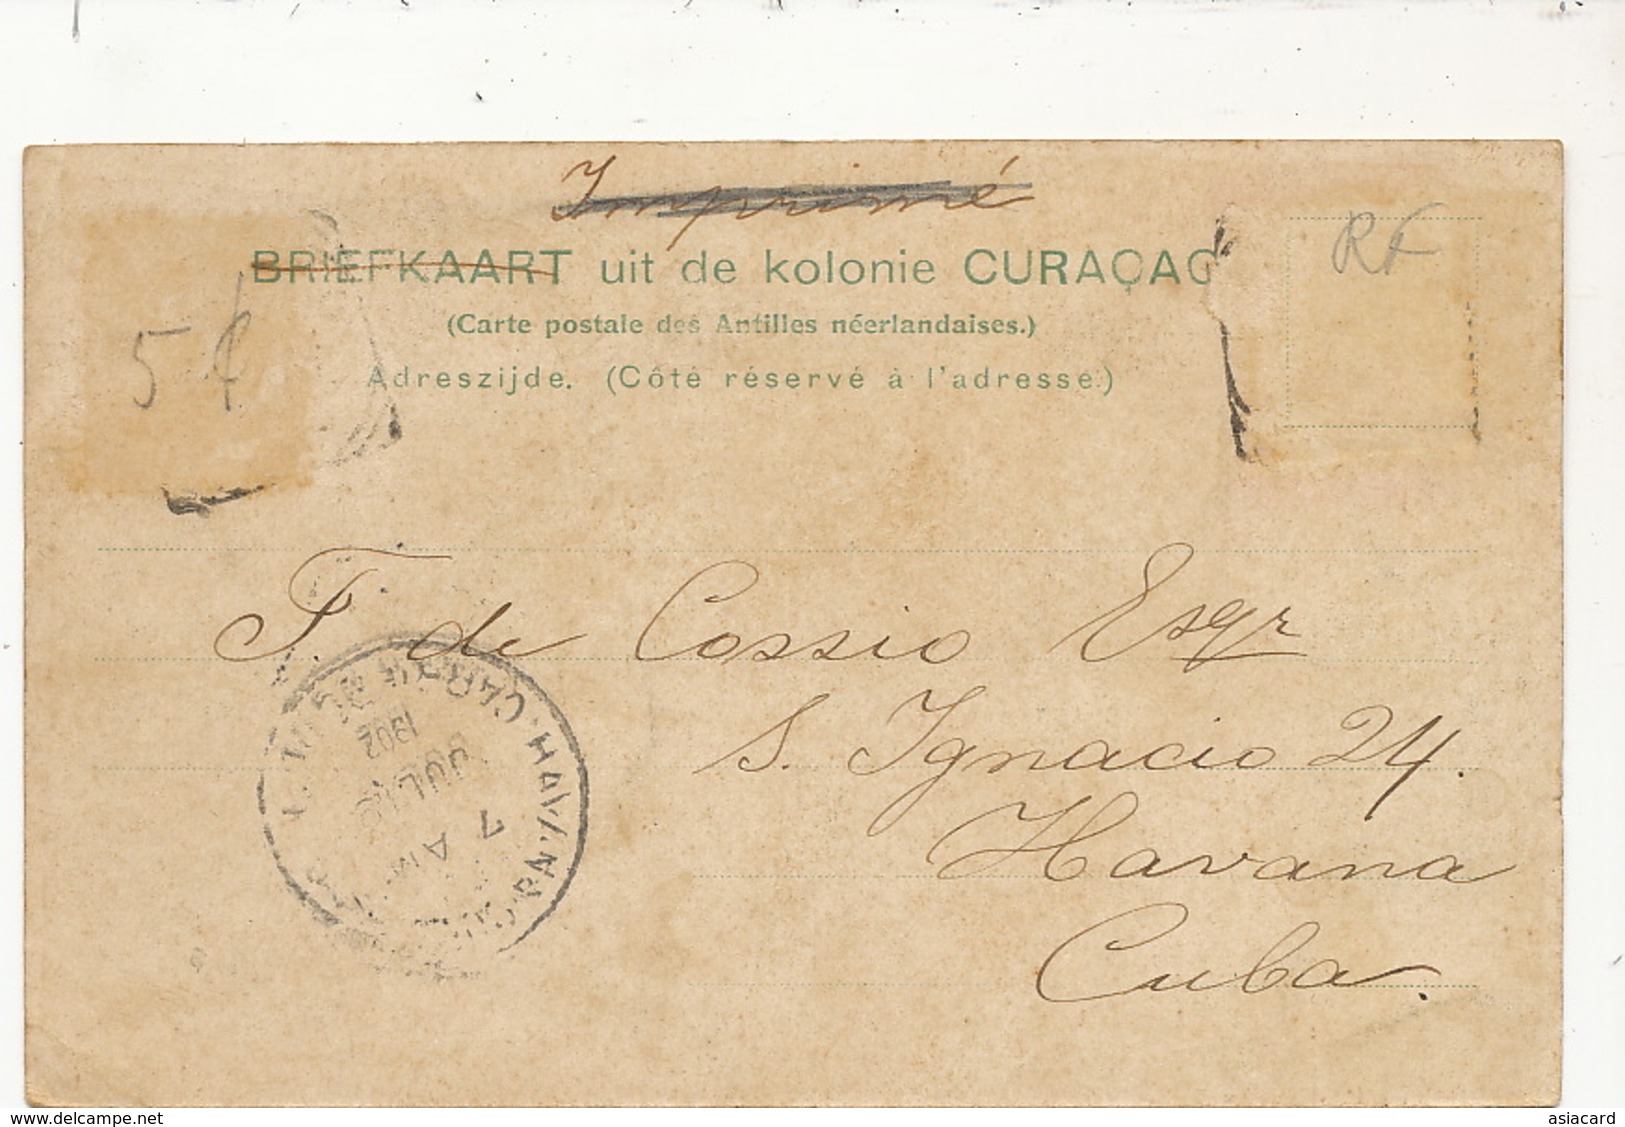 Imprimé
BRIEFKAART uit de kolonie CURAÇAO
(Carte postale des Antilles néerlandaises.)
Adreszijde. (Côté réservé à l'adresse.)
5 ¢
F. de Cossio Esqr
S. Ignacio 24.
Havana
Cuba.
HAVANA, CARTE
1902
JUL
7 AM
www.delcampe.net
asiacard